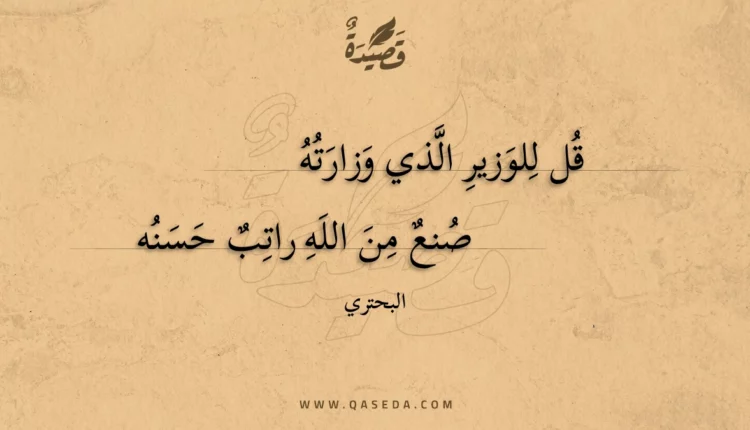 قَصِيدَةٌ
قُل لِلوَزيرِ الَّذي وَزارَتُهُ
صُنعٌ مِنَ اللَهِ راتِبٌ حَسَنُه
البحتري
WWW.QASEDA.COM